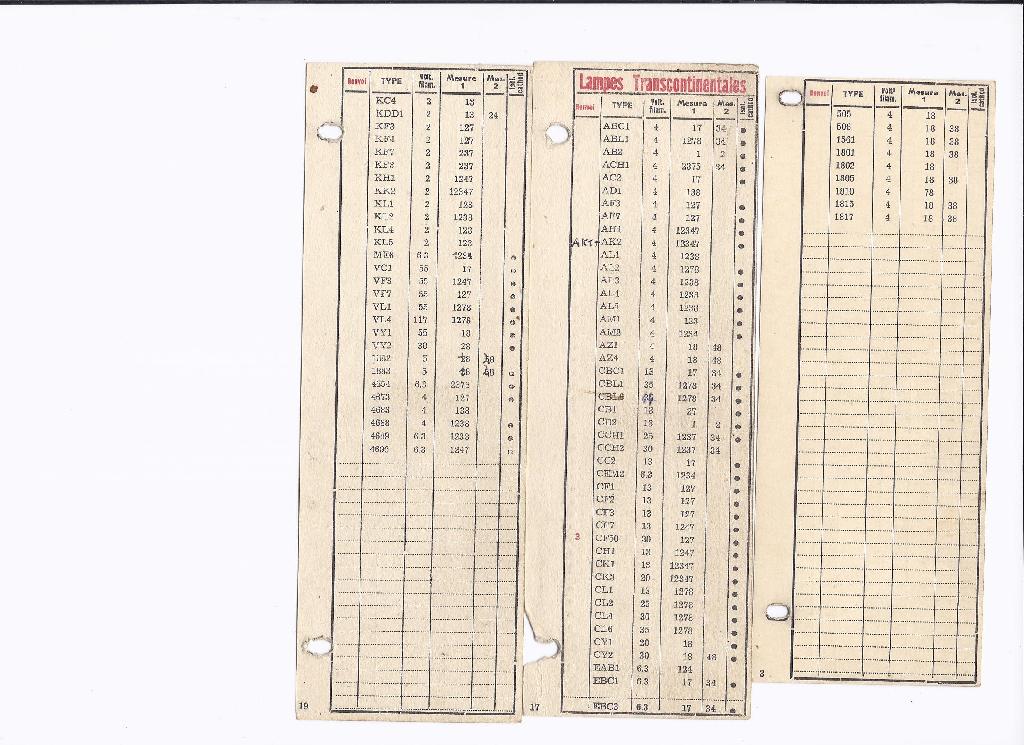 Renvoi TYPE Volt. filam. Mesure 1 Mes. 2 Isol. cathod
KC4 2 13
KDD1 2 13 24
KF3 2 127
KF4 2 127
KF7 2 237
KF8 2 237
KH1 2 1247
KK2 2 12347
KL1 2 123
KL2 2 1238
KL4 2 123
KL5 2 123
ME6 6.3 1234
VC1 55 17
VF3 55 1247
VF7 55 127
VL1 55 1278
VL4 117 1278
VY1 55 18
VY2 30 28
1882 5
1883 5
4654 6.3 2378
4673 4 127
4683 4 138
4688 4 1238
4689 6.3 1238
4695 6.3 1247
19
Lampes Transcontinentales
Renvoi TYPE Volt. filam. Mesure 1 Mes. 2 Isol. cathod
ABC1 4 17 34
ABL1 4 1278 34
AB2 4 1 2
ACH1 4 2375 34
AC2 4 17
AD1 4 138
AF3 4 127
AF7 4 127
AH1 4 12347
AK1+ AK2 4 12347
AL1 4 1238
AL2 4 1278
AL3 4 1238
AL4 4 1238
AL5 4 1238
AM1 4 123
AM2 4 1234
AZ1 4 18 48
AZ4 4 18 48
CBC1 13 17 34
CBL1 35 1278 34
CBL6 1278 34
CB1 13 27
CB2 13 1 2
CCH1 25 1237 34
CCH2 30 1237 34
CC2 13 17
CEM2 6.3 1234
CF1 13 127
CF2 13 127
CF3 13 127
CF7 13 1247
3 CF50 30 127
CH1 13 1247
CK1 13 12347
CK3 20 12347
CL1 13 1278
CL2 25 1278
CL4 30 1278
CL6 35 1278
CY1 20 18
CY2 30 18 48
EAB1 6.3 124
EBC1 6.3 17 34
EBC3 6.3 17 34
17
Renvoi TYPE Volt. filam. Mesure 1 Mes. 2 Isol. cathod
505 4 18
506 4 18 38
1561 4 18 38
1801 4 18 38
1802 4 18
1805 4 18 38
1810 4 78
1815 4 18 38
1817 4 18 38
3